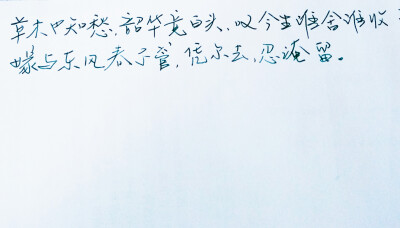 草木也知愁,韶华竟白头,叹今生谁舍谁收
嫁与东风春不管,凭尔去,忍淹留。